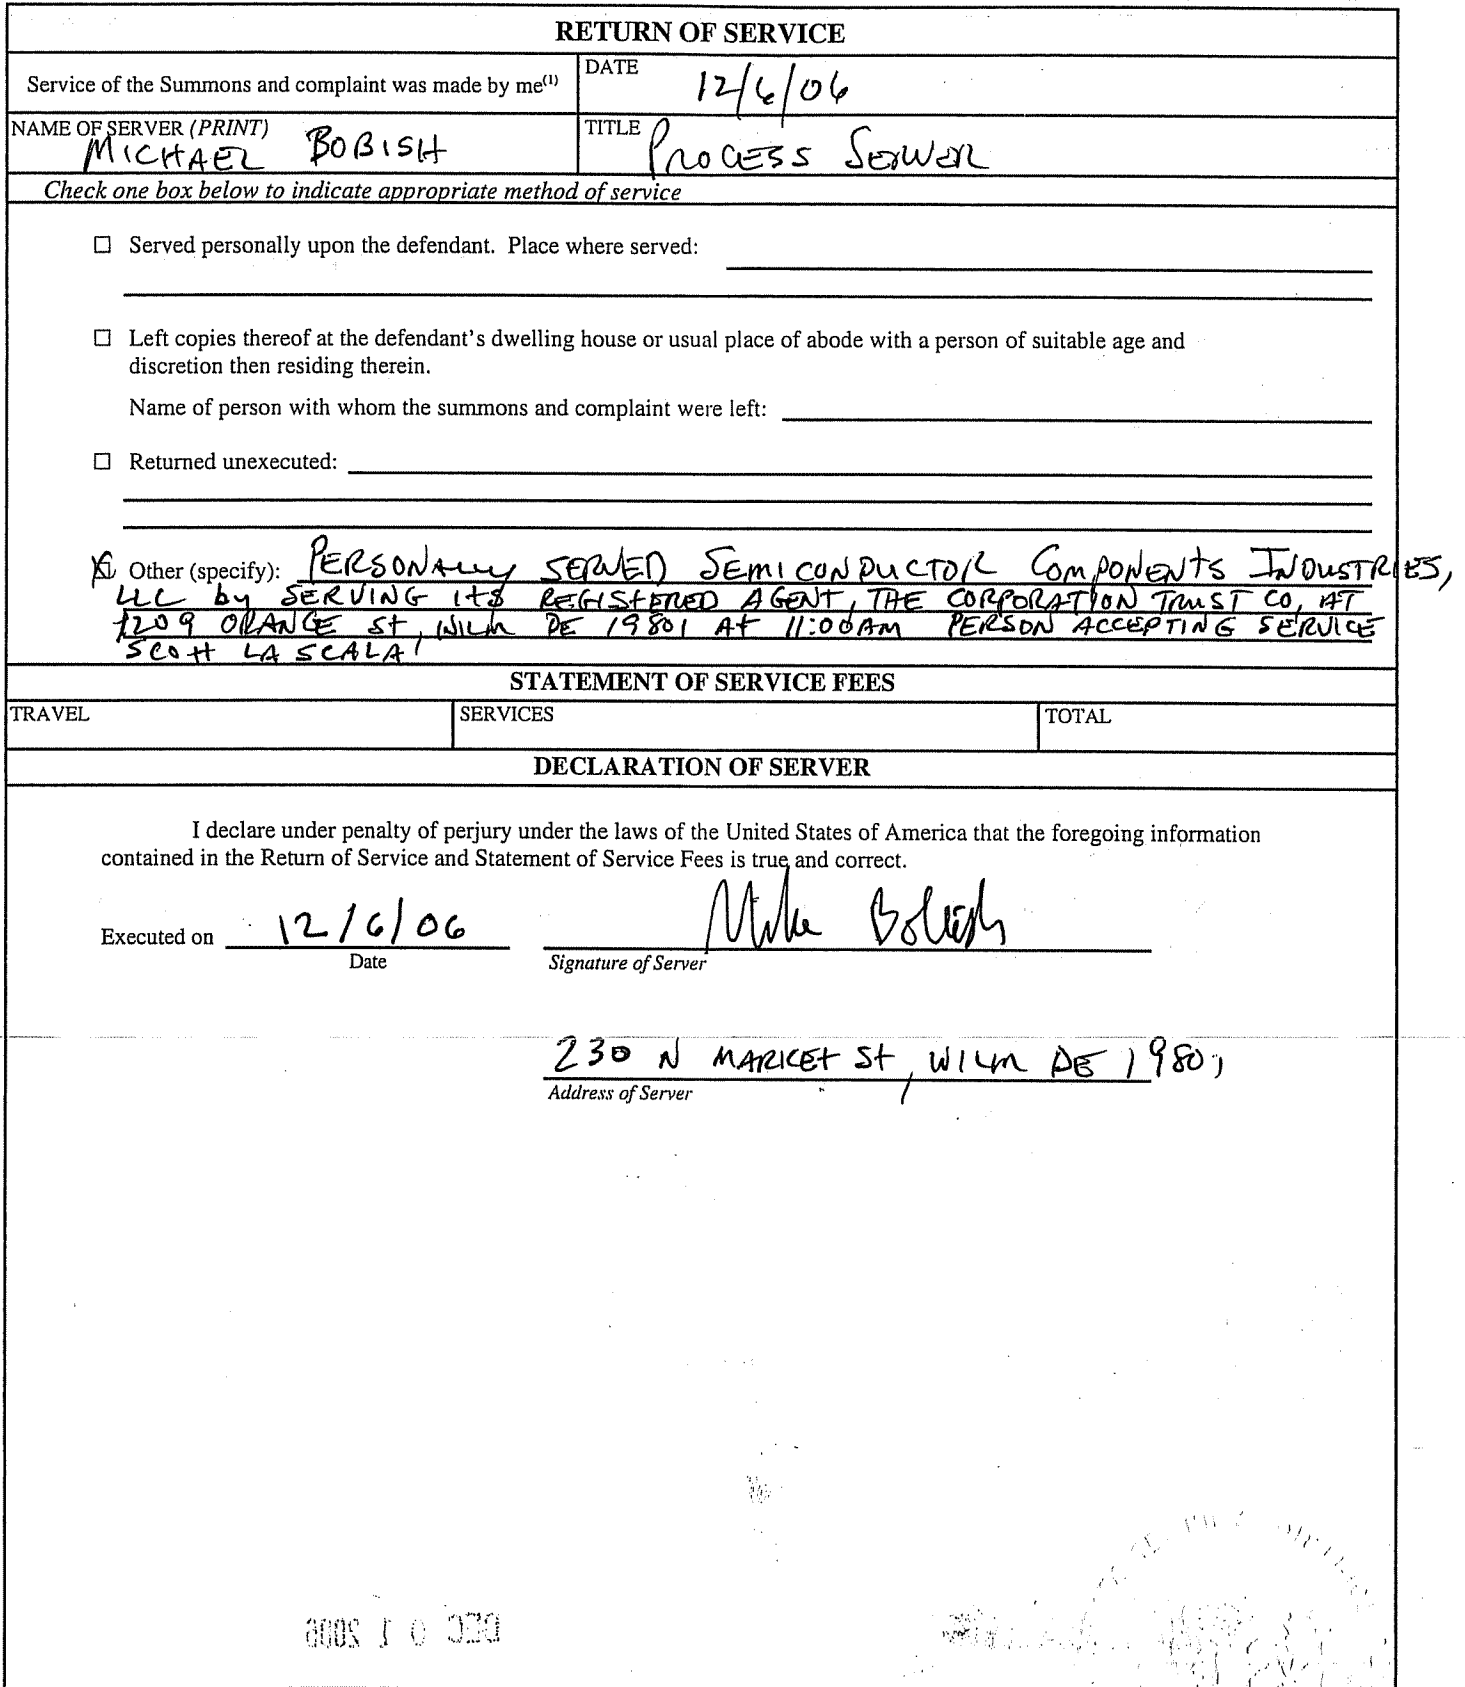 RETURN OF SERVICE
Service of the Summons and complaint was made by me(1)
DATE
12/6/06
NAME OF SERVER (PRINT)
MICHAEL BOBISH
TITLE
PROCESS SERVER
Check one box below to indicate appropriate method of service
☐ Served personally upon the defendant. Place where served:
☐ Left copies thereof at the defendant's dwelling house or usual place of abode with a person of suitable age and
discretion then residing therein.
Name of person with whom the summons and complaint were left:
☐ Returned unexecuted:
☒ Other (specify): PERSONALLY SERVED SEMICONDUCTOR COMPONENTS INDUSTRIES,
LLC by SERVING ITS REGISTERED AGENT, THE CORPORATION TRUST CO, AT
1209 ORANGE St, WILM DE 19801 At 11:00AM PERSON ACCEPTING SERVICE
SCOtt LA SCALA
STATEMENT OF SERVICE FEES
TRAVEL
SERVICES
TOTAL
DECLARATION OF SERVER
I declare under penalty of perjury under the laws of the United States of America that the foregoing information
contained in the Return of Service and Statement of Service Fees is true and correct.
Executed on 12/6/06
Mike Bobish
Date
Signature of Server
230 N MARKEt St, WILM DE 19801
Address of Server
DEC 01 2006